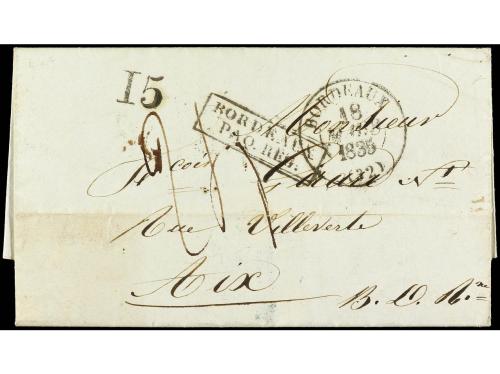 15
BORDEAUX
PAQ. REG.
BORDEAUX
18
1835
(32)
Monsieur
Rue Villeverte
Aix
B. D. R.ne